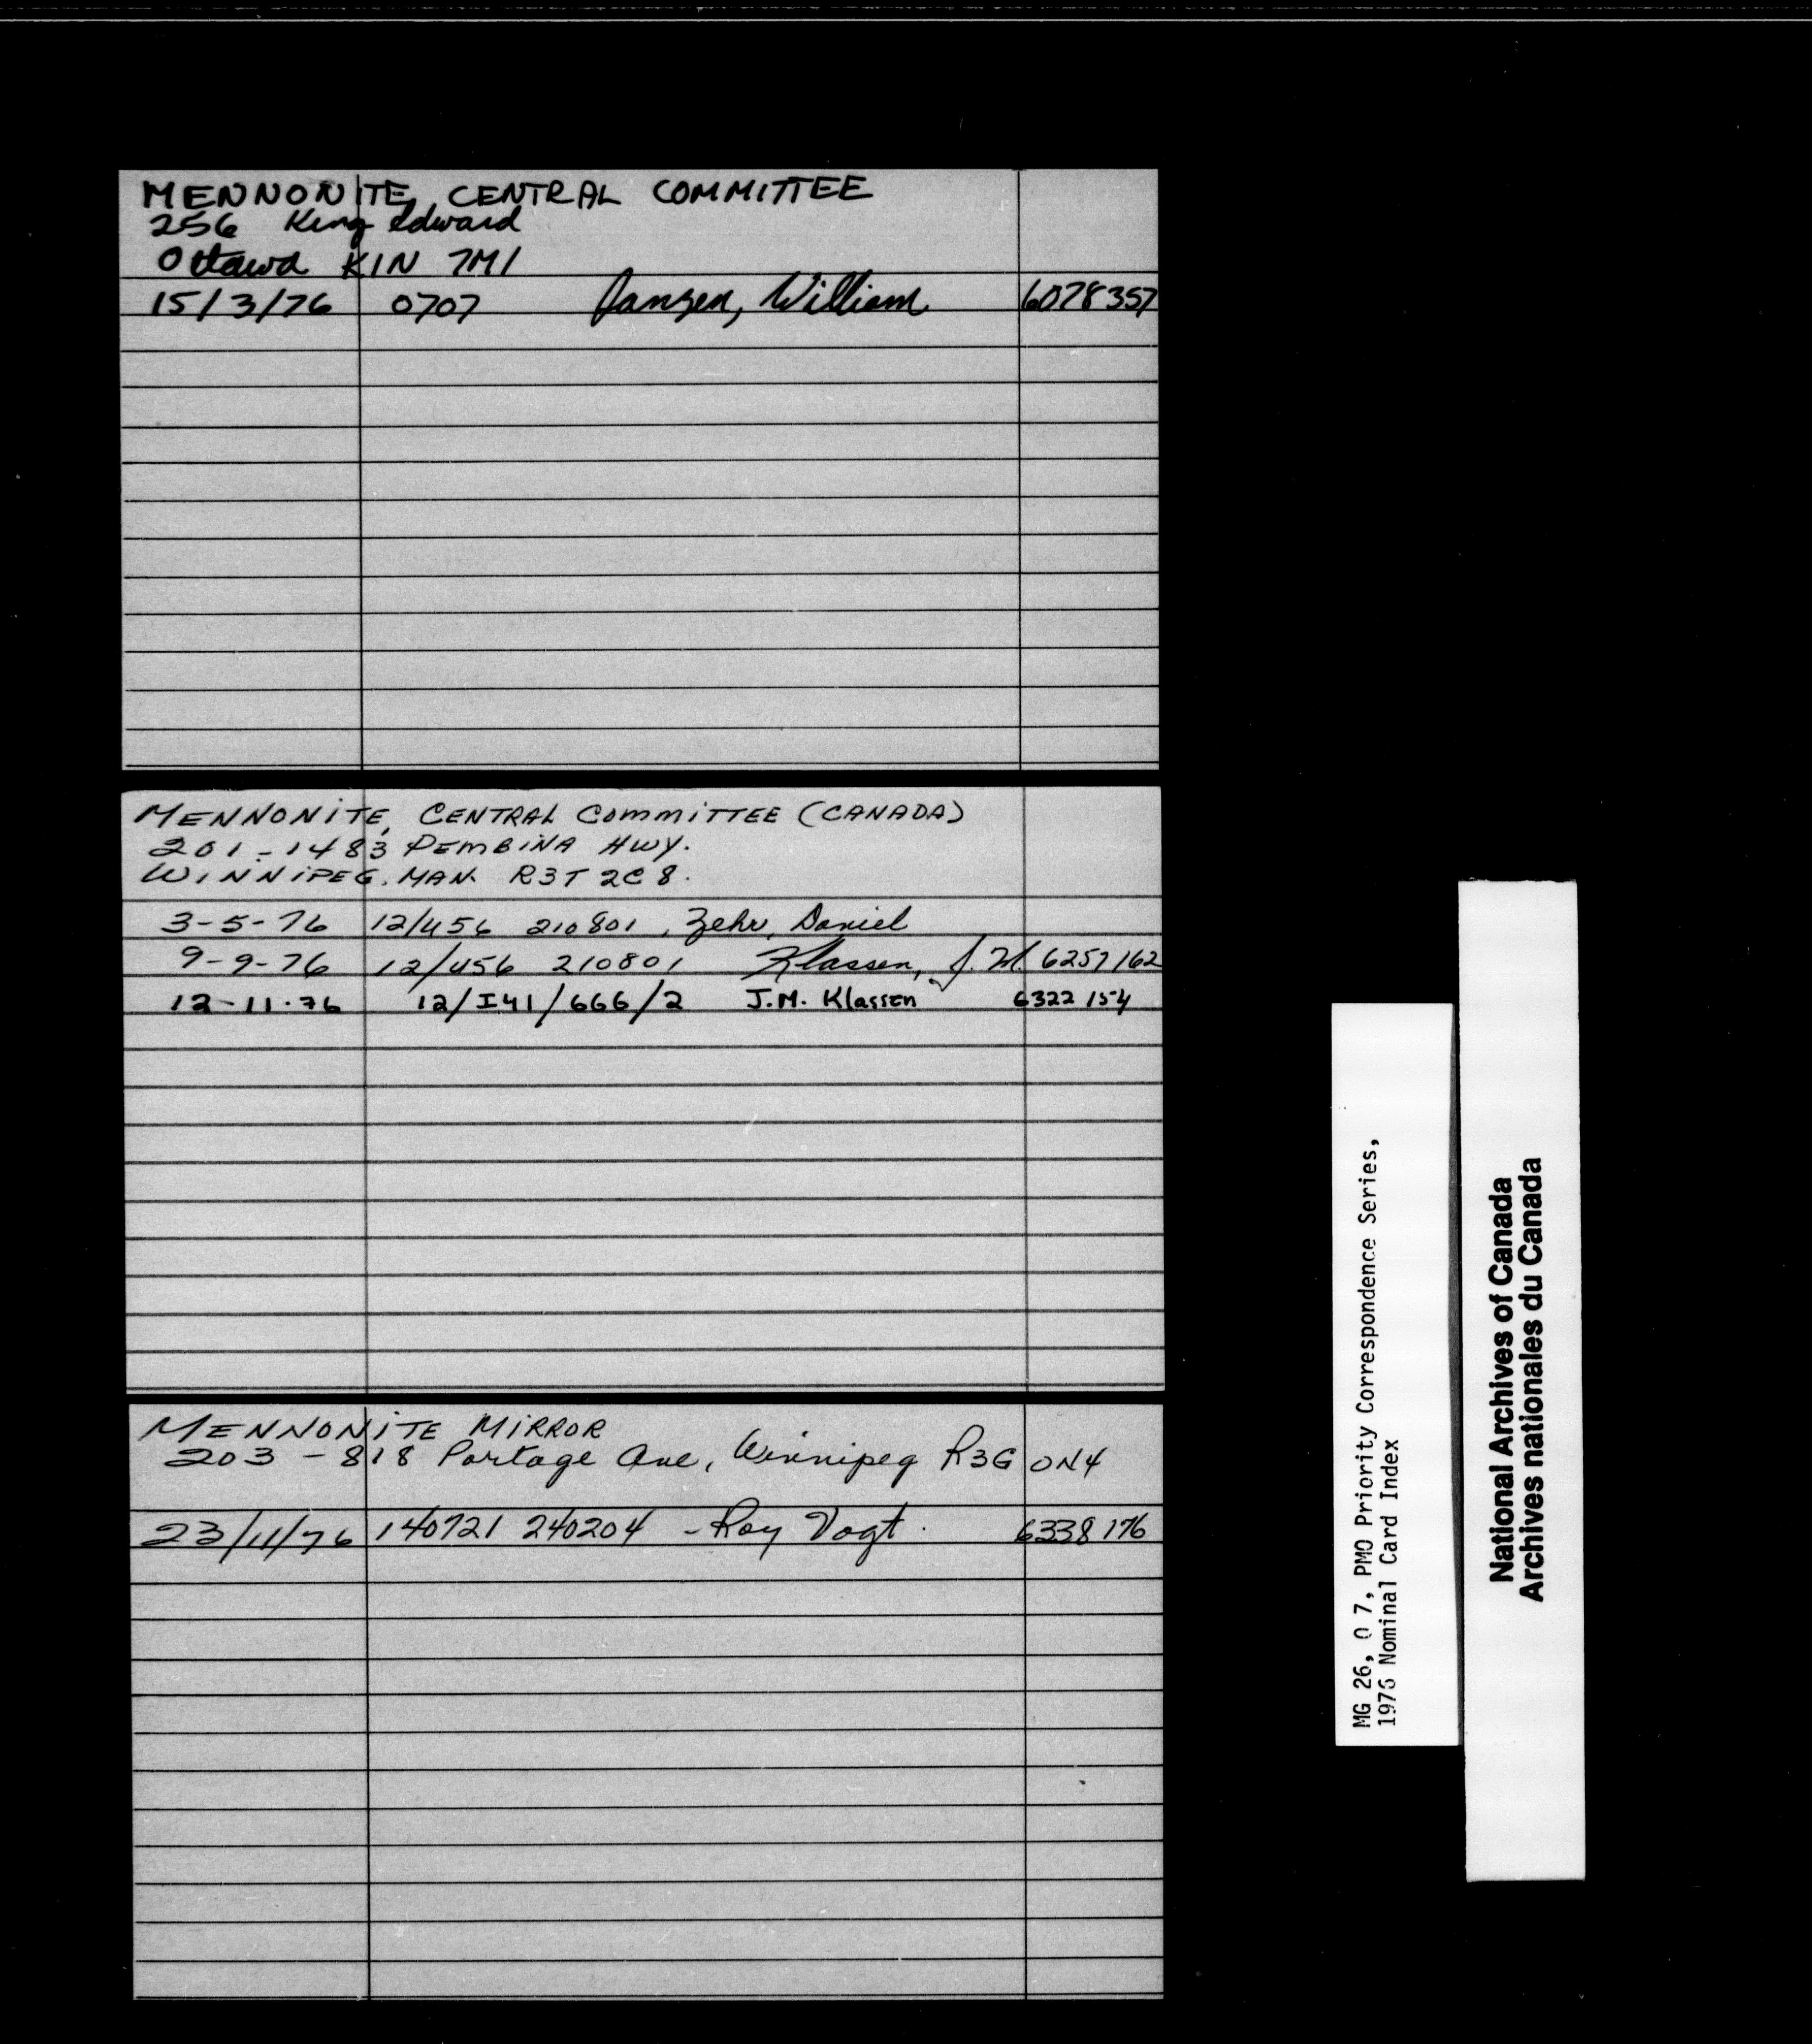 MENNONITE CENTRAL COMMITTEE
256 King Edward
Ottawa K1N 7M1
15/3/76 0707 Janzen, William 6078357
MENNONITE CENTRAL COMMITTEE (CANADA)
201-1483 PEMBINA HWY.
WINNIPEG. MAN. R3T 2C8.
3-5-76 12/456 210801, Zehr, Daniel
9-9-76 12/456 210801 Klassen, J. M. 6257162
12-11-76 12/I41/666/2 J.M. Klassen 6322154
MENNONITE MIRROR
203 - 818 Portage Ave, Winnipeg R3G 0N4
23/11/76 140721 240204 - Roy Vogt. 6338176
MG 26, O 7, PMO Priority Correspondence Series,
1976 Nominal Card Index
National Archives of Canada
Archives nationales du Canada